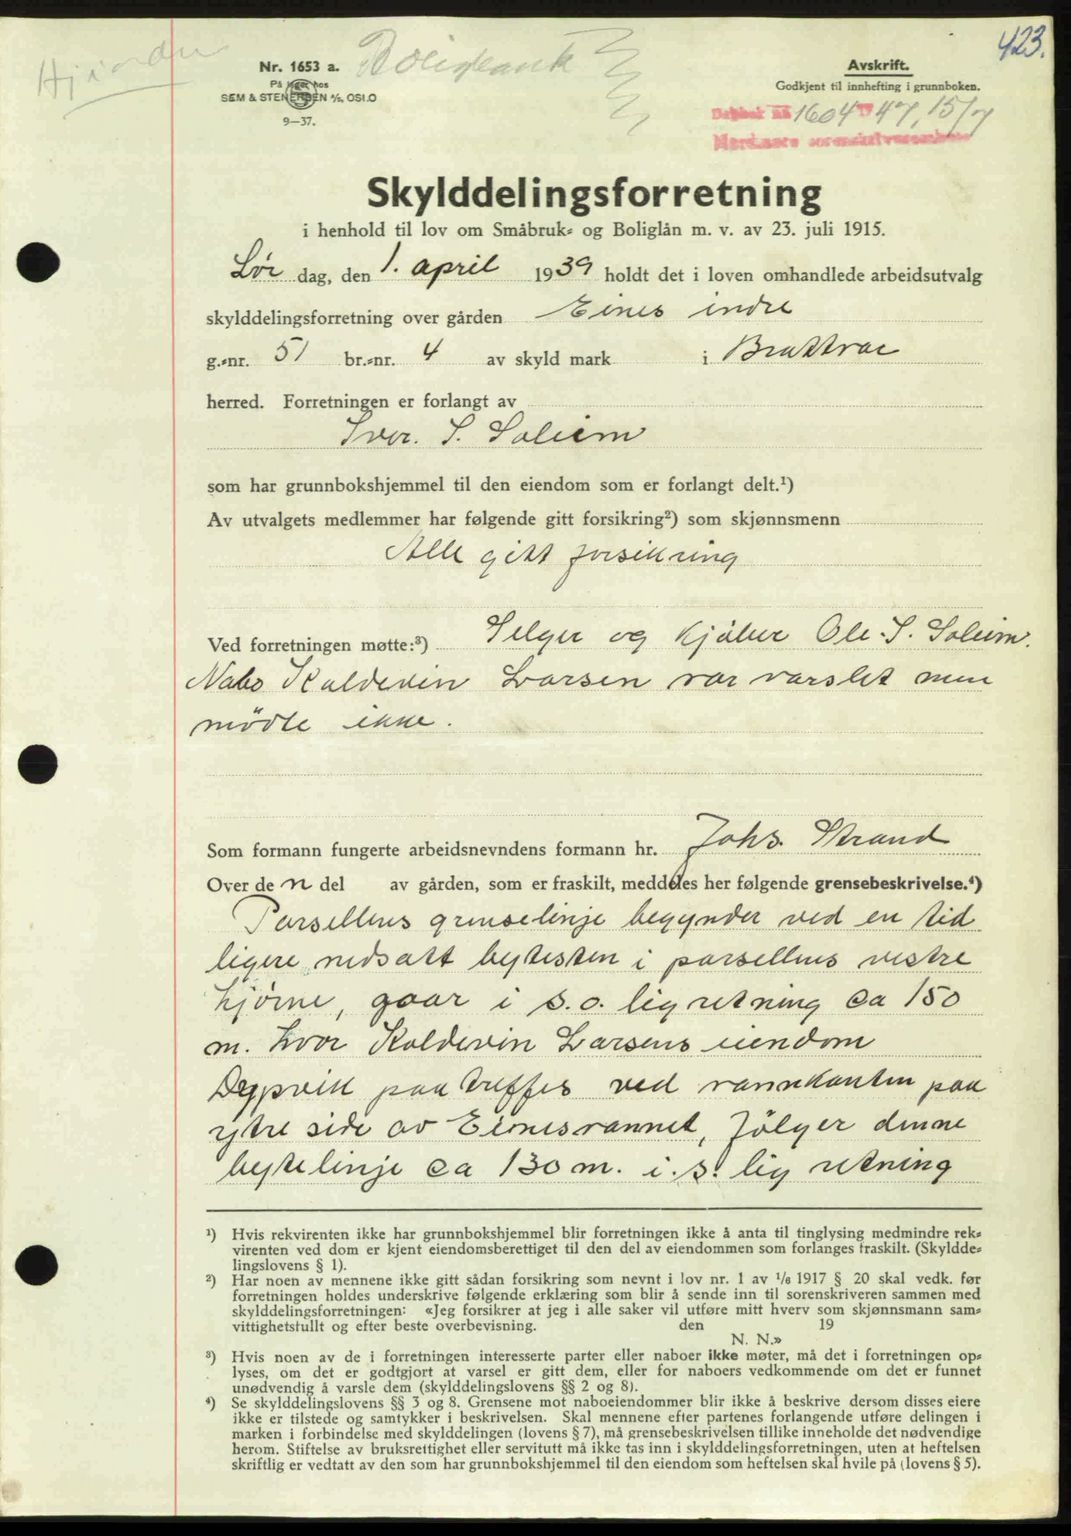 423.
Boligbank
Nr. 1653 a.
På lager hos
SEM & STENERSEN A/S, OSLO
9—37.
Avskrift.
Godkjent til innhefting i grunnboken.
Dagbok nr. 1604 19 47, 15/7
Nordmøre sorenskriverembete
Skylddelingsforretning
i henhold til lov om Småbruk- og Boliglån m. v. av 23. juli 1915.
Lør dag, den 1. april 1939 holdt det i loven omhandlede arbeidsutvalg
skylddelingsforretning over gården Eines indre
g.-nr. 51 br.-nr. 4 av skyld mark i Brattvær
herred. Forretningen er forlangt av
Iver. S. Soleim
som har grunnbokshjemmel til den eiendom som er forlangt delt.¹)
Av utvalgets medlemmer har følgende gitt forsikring²) som skjønnsmenn
Alle gitt forsikring
Ved forretningen møtte:³) Selger og Kjøber Ole. S. Soleim.
Nabo Koldevin Larsen var varslet men
mødte ikke.
Som formann fungerte arbeidsnevndens formann hr. Johs. Strand
Over de n del av gården, som er fraskilt, meddeles her følgende grensebeskrivelse.⁴)
Parsellens grenselinje begynder ved en tid
ligere nedsatt bytesten i parsellens vestre
hjørne, gaar i s.o. lig retning ca 150
m. hvor Koldevin Larsens eiendom
Dypvik paa treffes ved vannkanten paa
ytre side av Einesvannet, følger denne
bytelinje ca 130 m. i. s. lig retning
¹) Hvis rekvirenten ikke har grunnbokshjemmel blir forretningen ikke å anta til tinglysing medmindre rek-
virenten ved dom er kjent eiendomsberettiget til den del av eiendommen som forlanges fraskilt. (Skyldde-
lingslovens § 1).
²) Har noen av mennene ikke gitt sådan forsikring som nevnt i lov nr. 1 av 1/6 1917 § 20 skal vedk. før
forretningen holdes underskrive følgende erklæring som blir å sende inn til sorenskriveren sammen med
skylddelingsforretningen: «Jeg forsikrer at jeg i alle saker vil utføre mitt hverv som skjønnsmann sam-
vittighetsfullt og efter beste overbevisning. den 19
N. N.»
³) Hvis noen av de i forretningen interesserte parter eller naboer ikke møter, må det i forretningen op-
lyses, om det er godtgjort at varsel er gitt dem, eller for naboers vedkommende om det er funnet
unødvendig å varsle dem (skylddelingslovens §§ 2 og 8).
⁴) Se skylddelingslovens §§ 3 og 8. Grensene mot naboeiendommer blir ikke å beskrive dersom disses eiere
ikke er tilstede og samtykker i beskrivelsen. Skal mennene efter partenes forlangende utføre delingen i
marken i forbindelse med skylddelingen (lovens § 7), må grensebeskrivelsen tillike inneholde det nødvendige
herom. Stiftelse av bruksrettighet eller servitutt må ikke tas inn i skylddelingsforretningen, uten at heftelsen
skriftlig er vedtatt av den som har grunnbokshjemmel til den eiendom som heftelsen skal hvile på (lovens § 5).